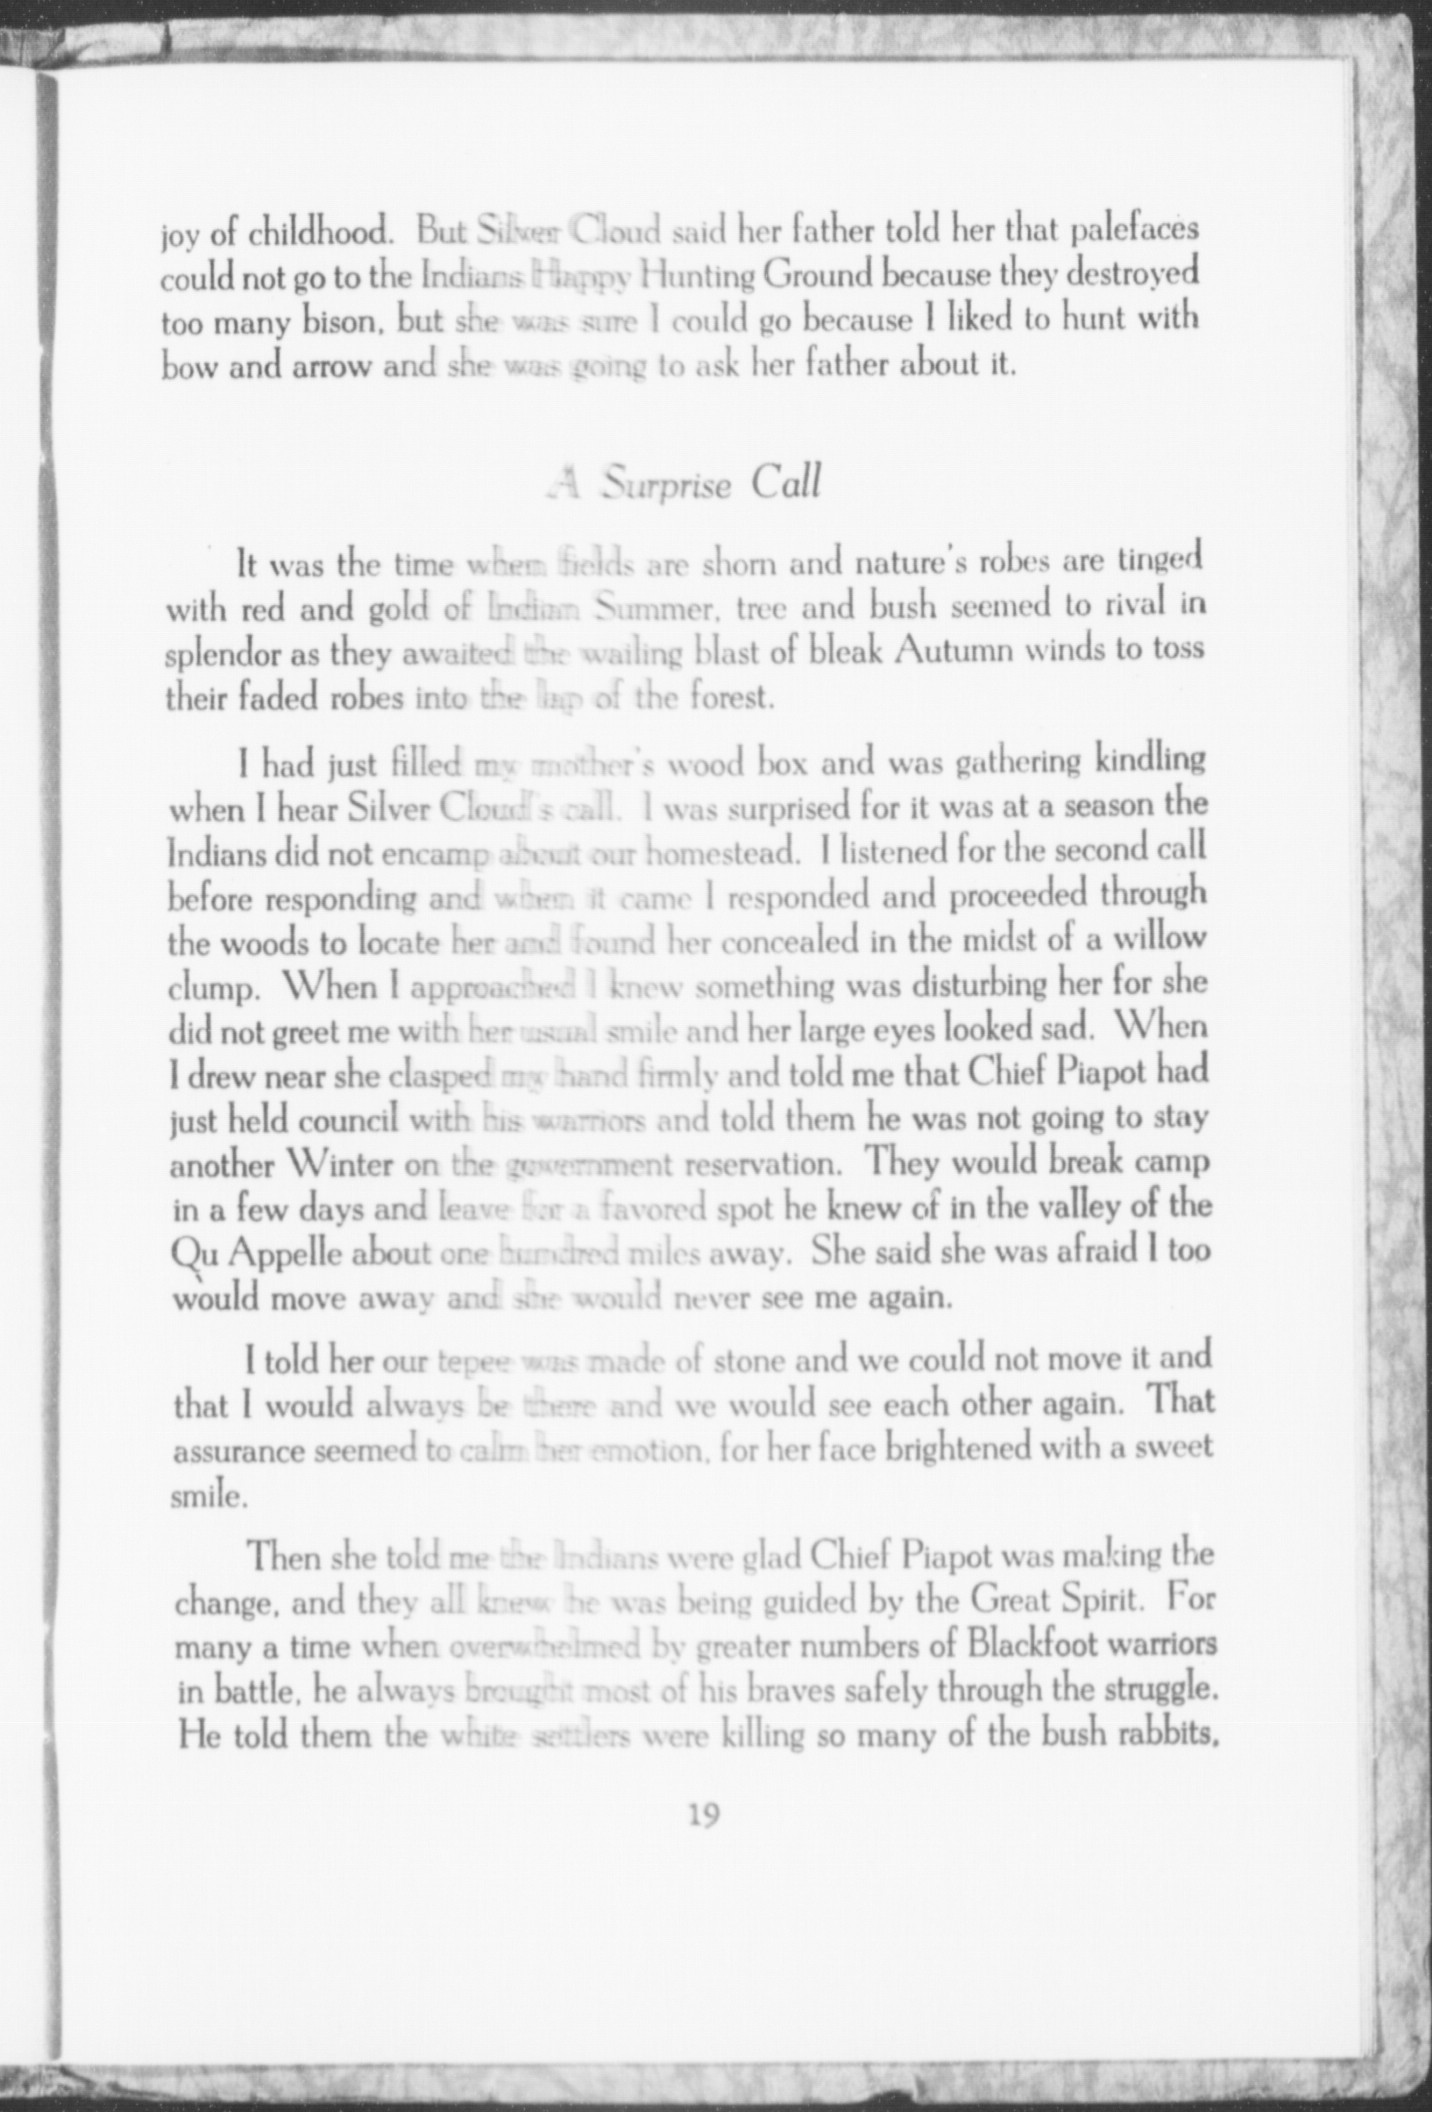 joy of childhood. But Silver Cloud said her father told her that palefaces
could not go to the Indians Happy Hunting Ground because they destroyed
too many bison, but she was sure I could go because I liked to hunt with
bow and arrow and she was going to ask her father about it.
A Surprise Call
It was the time when fields are shorn and nature's robes are tinged
with red and gold of Indian Summer, tree and bush seemed to rival in
splendor as they awaited the wailing blast of bleak Autumn winds to toss
their faded robes into the lap of the forest.
I had just filled my mother's wood box and was gathering kindling
when I hear Silver Cloud's call. I was surprised for it was at a season the
Indians did not encamp about our homestead. I listened for the second call
before responding and when it came I responded and proceeded through
the woods to locate her and found her concealed in the midst of a willow
clump. When I approached I knew something was disturbing her for she
did not greet me with her usual smile and her large eyes looked sad. When
I drew near she clasped my hand firmly and told me that Chief Piapot had
just held council with his warriors and told them he was not going to stay
another Winter on the government reservation. They would break camp
in a few days and leave for a favored spot he knew of in the valley of the
Qu Appelle about one hundred miles away. She said she was afraid I too
would move away and she would never see me again.
I told her our tepee was made of stone and we could not move it and
that I would always be there and we would see each other again. That
assurance seemed to calm her emotion, for her face brightened with a sweet
smile.
Then she told me the Indians were glad Chief Piapot was making the
change, and they all knew he was being guided by the Great Spirit. For
many a time when overwhelmed by greater numbers of Blackfoot warriors
in battle, he always brought most of his braves safely through the struggle.
He told them the white settlers were killing so many of the bush rabbits,
19